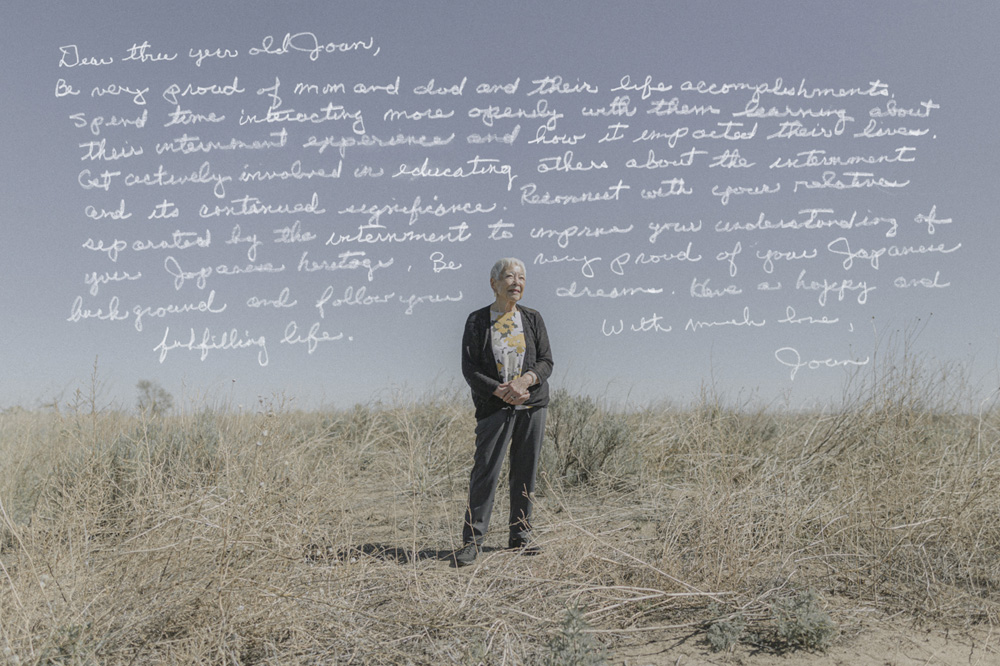 Dear three year old Joan,
Be very proud of mom and dad and their life accomplishments.
Spend time interacting more openly with them learning about
their internment experience and how it impacted their lives.
Get actively involved in educating others about the internment
and its continued significance. Reconnect with your relatives
separated by the internment to improve your understanding of
your Japanese heritage. Be very proud of your Japanese
background and follow your dreams. Have a happy and
fulfilling life. With much love,
Joan